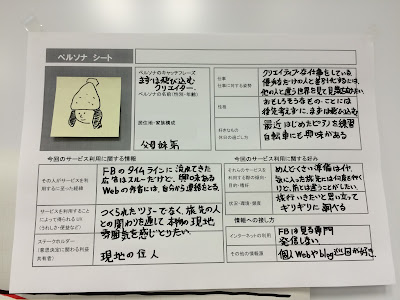 ペルソナ シート
ペルソナのキャッチフレーズ
まずは飛び込む
クリエイター
ペルソナの名前(性別・年齢)
居住地・家族構成
父母妹弟
仕事
仕事に対する姿勢
クリエイティブな仕事をしている。
他の人と違う世界を見て見識を
性格
おもしろそうなもの・ことには
後先考えずに、まずは飛び込む
好きなもの
休日の過ごし方
最近はじめたピアノを練習
自転車にも興味がある
今回のサービス利用に関する情報
その人がサービスを利用
するに至った経緯
FBのタイムラインに流れてきた
広告はスルーだけど、興味のある
Webの作者には、自分から連絡をとる。
サービスを利用すること
によって得られる
(うれしさ・便益など)
つくられたツアーでなく、旅先の人
との関わりを通して本物の現地
雰囲気を感じとりたい。
ステークホルダー
(意思決定に関わる利益
共有者)
現地の住人
今回のサービス利用に関する好み
それらのサービスを
利用する際の
目的・嗜好
めんどくさい準備はイヤ。
気に入った旅先には何度も行く
けど、前とは違うことがしたい。
状況・環境・制度
旅行いきたいと思い立って
ギリギリに調べる
情報への接し方
インターネットの利用
FBは見る専門
発信しない
その他の情報源
個人Webやblog巡回が好き。